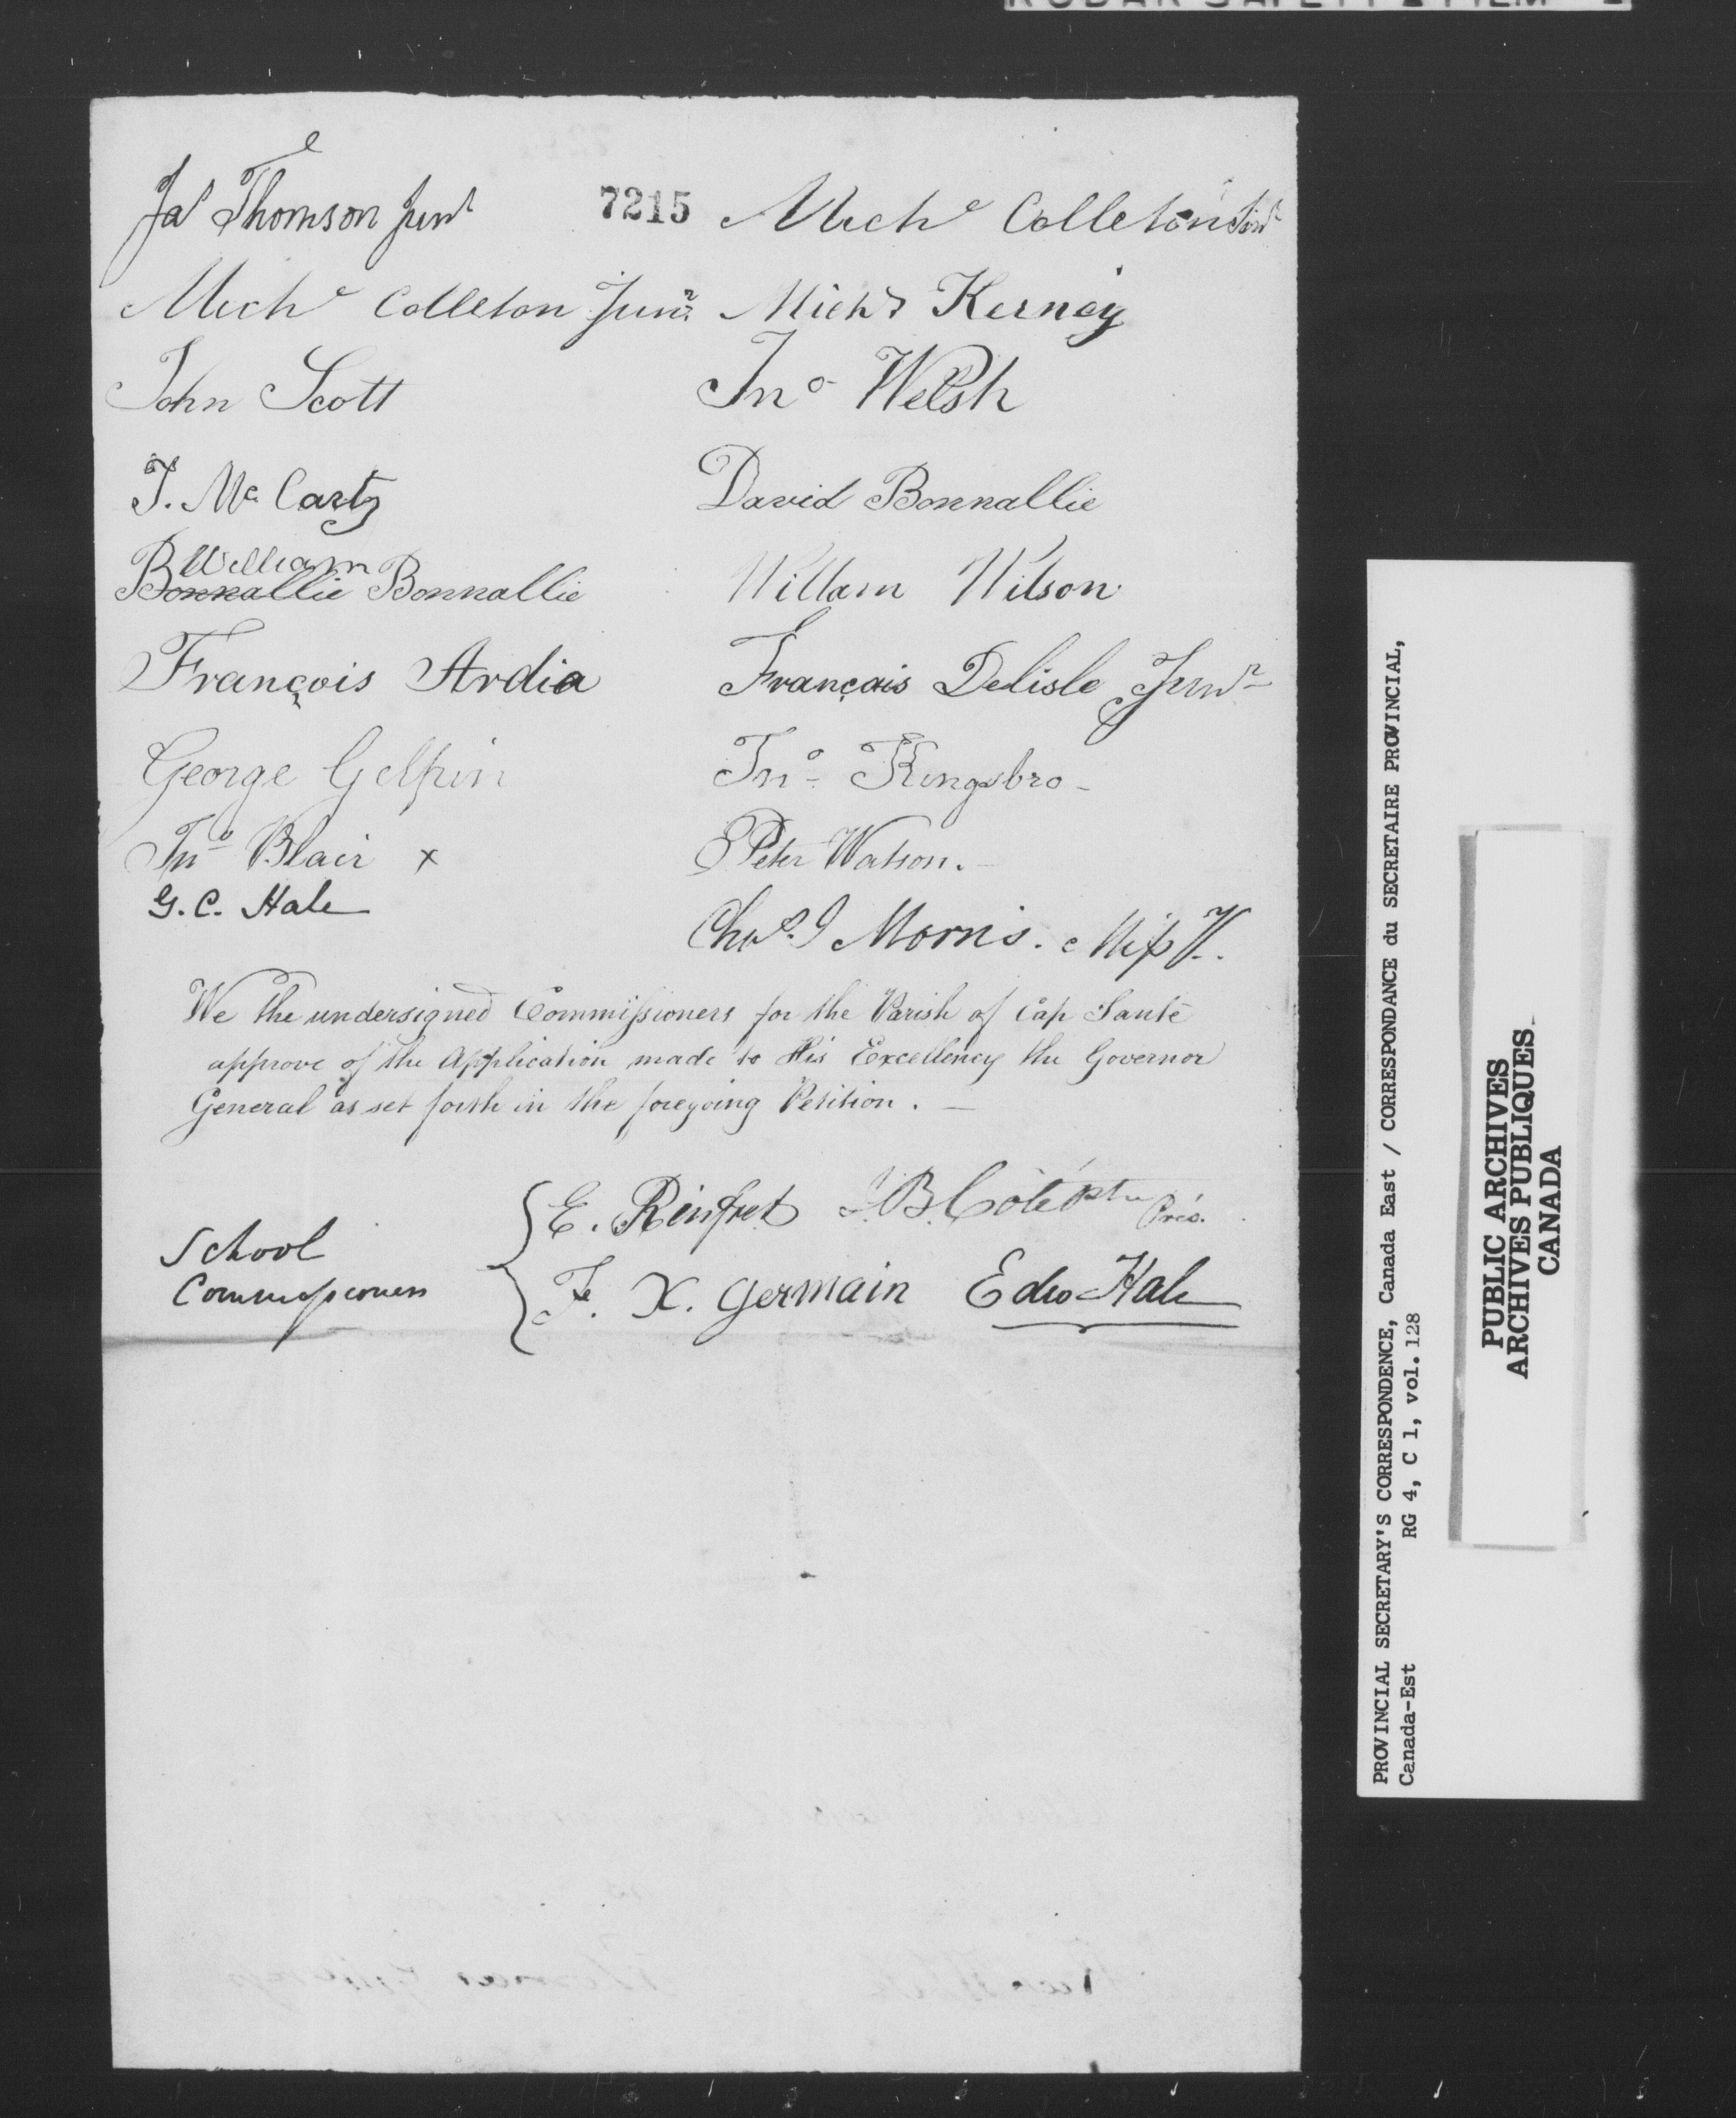 KODAK SAFETY FILM
Jas Thomson Junr
7215
Michl Colleton Senr
Michl Colleton Junr
Michl Kerney
John Scott
Jno Welsh
T. Mc Carty
David Bonnallie
William
Bonnallie Bonnallie
Willam Wilson
François Ardia
Français Delisle Junr
George Gelpin
Jno Kingsbro -
Jno Blair x
Peter Watson.
G. C. Hale
Chas. J Morris. Miss
We the undersigned Commissioners for the Parish of Cap Santé
approve of the Application made to His Excellency the Governor
General as set forth in the foregoing Petition. —
School
Commissioners
E. Rinfret J. B. Coté Ptre Prés.
F. X. Germain Edw Hale
PROVINCIAL SECRETARY'S CORRESPONDENCE, Canada East / CORRESPONDANCE du SECRETAIRE PROVINCIAL,
Canada-Est RG 4, C 1, vol. 128
PUBLIC ARCHIVES
ARCHIVES PUBLIQUES
CANADA